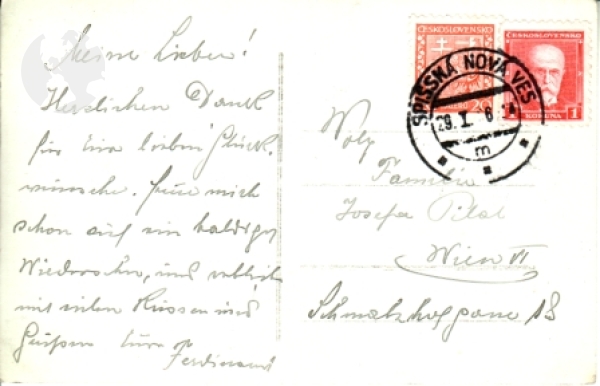 Meine Lieben!
Herzlichen Dank
für Eure lieben Glück-
wünsche. Freue mich
schon auf ein baldiges
Wiedersehen, und verbleibe
mit vielen Küssen und
Grüßen Euer
Ferdinand
ČESKOSLOVENSKO
20
ČESKOSLOVENSKO
1 KORUNA 1
SPIŠSKÁ NOVÁ VES
29. I.
m
Familie
Josefa
Wien VI
Schmalzhofgasse 18